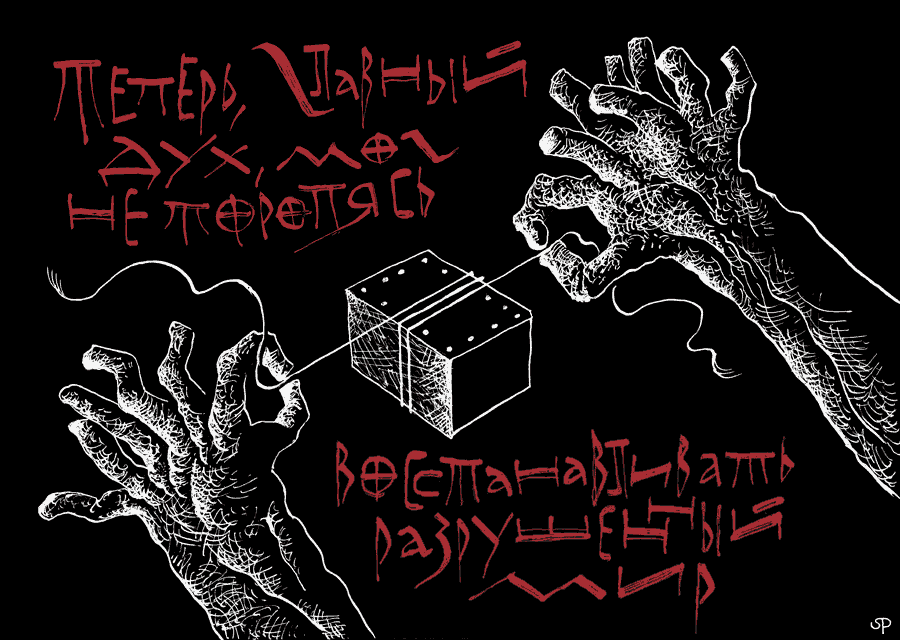 Теперь, главный
дух, мог
не торопясь
восстанавливать
разрушенный
мир
SP